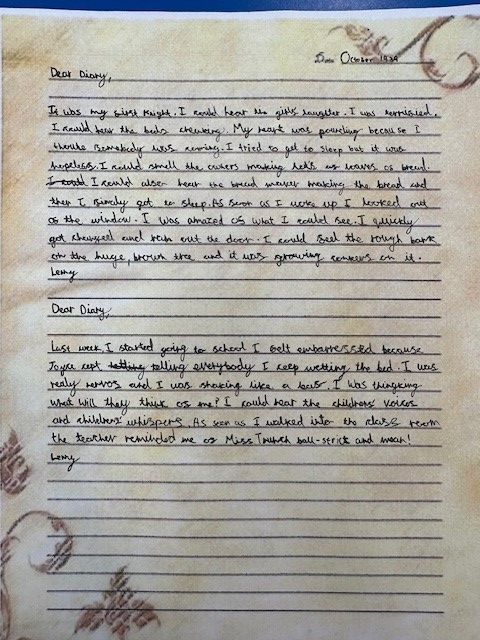 October 1939
Dear Diary,
It was my first knight. I could hear the girls laughter. I was terrified.
I could hear the beds creaking. My heart was pounding because I
somebody was coming. I tried to get to sleep but it was
hopeless. I could smell the owners making lots of loaves of bread.
I could I could also hear the bread maker making the bread and
then I finaly got to sleep. As soon as I woke up I looked out
of the window. I was amazed of what I could see. I quickly
got changed and ran out the door. I could feel the rough bark
on the huge, brown tree and it was growing conkers on it.
Lenny
Dear Diary,
Last week, I started going to school I felt embarressed because
Joyce kept telling everybody I keep wetting the bed. I was
realy nervos and I was shaking like a leaf. I was thingking
what will they think of me? I could hear the childrens voices
and childrens whispers. As soon as I walked into the class room
the teacher reminded me of Miss Trunch ball-strict and mean!
Lenny